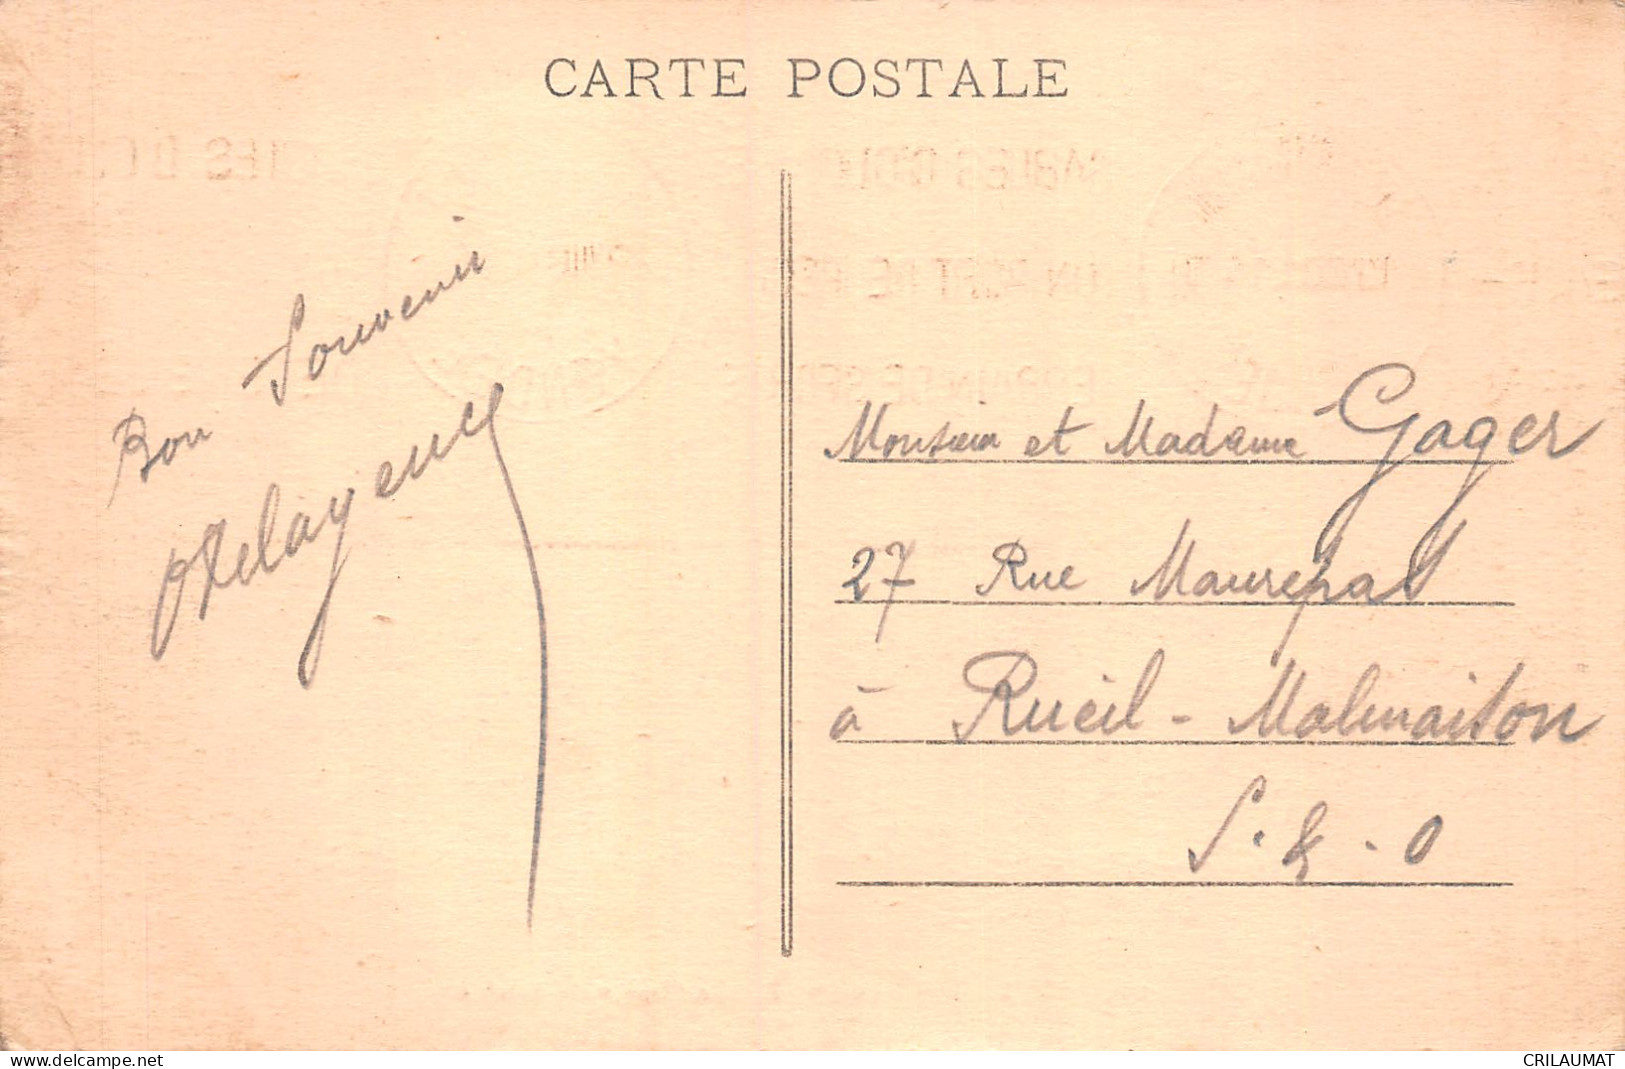 CARTE POSTALE
Bon Souvenir
Monsieur et Madame Gager
27 Rue Maurepas
à Rueil - Malmaison
S. & . O
delcampe.net
CRILAUMAT